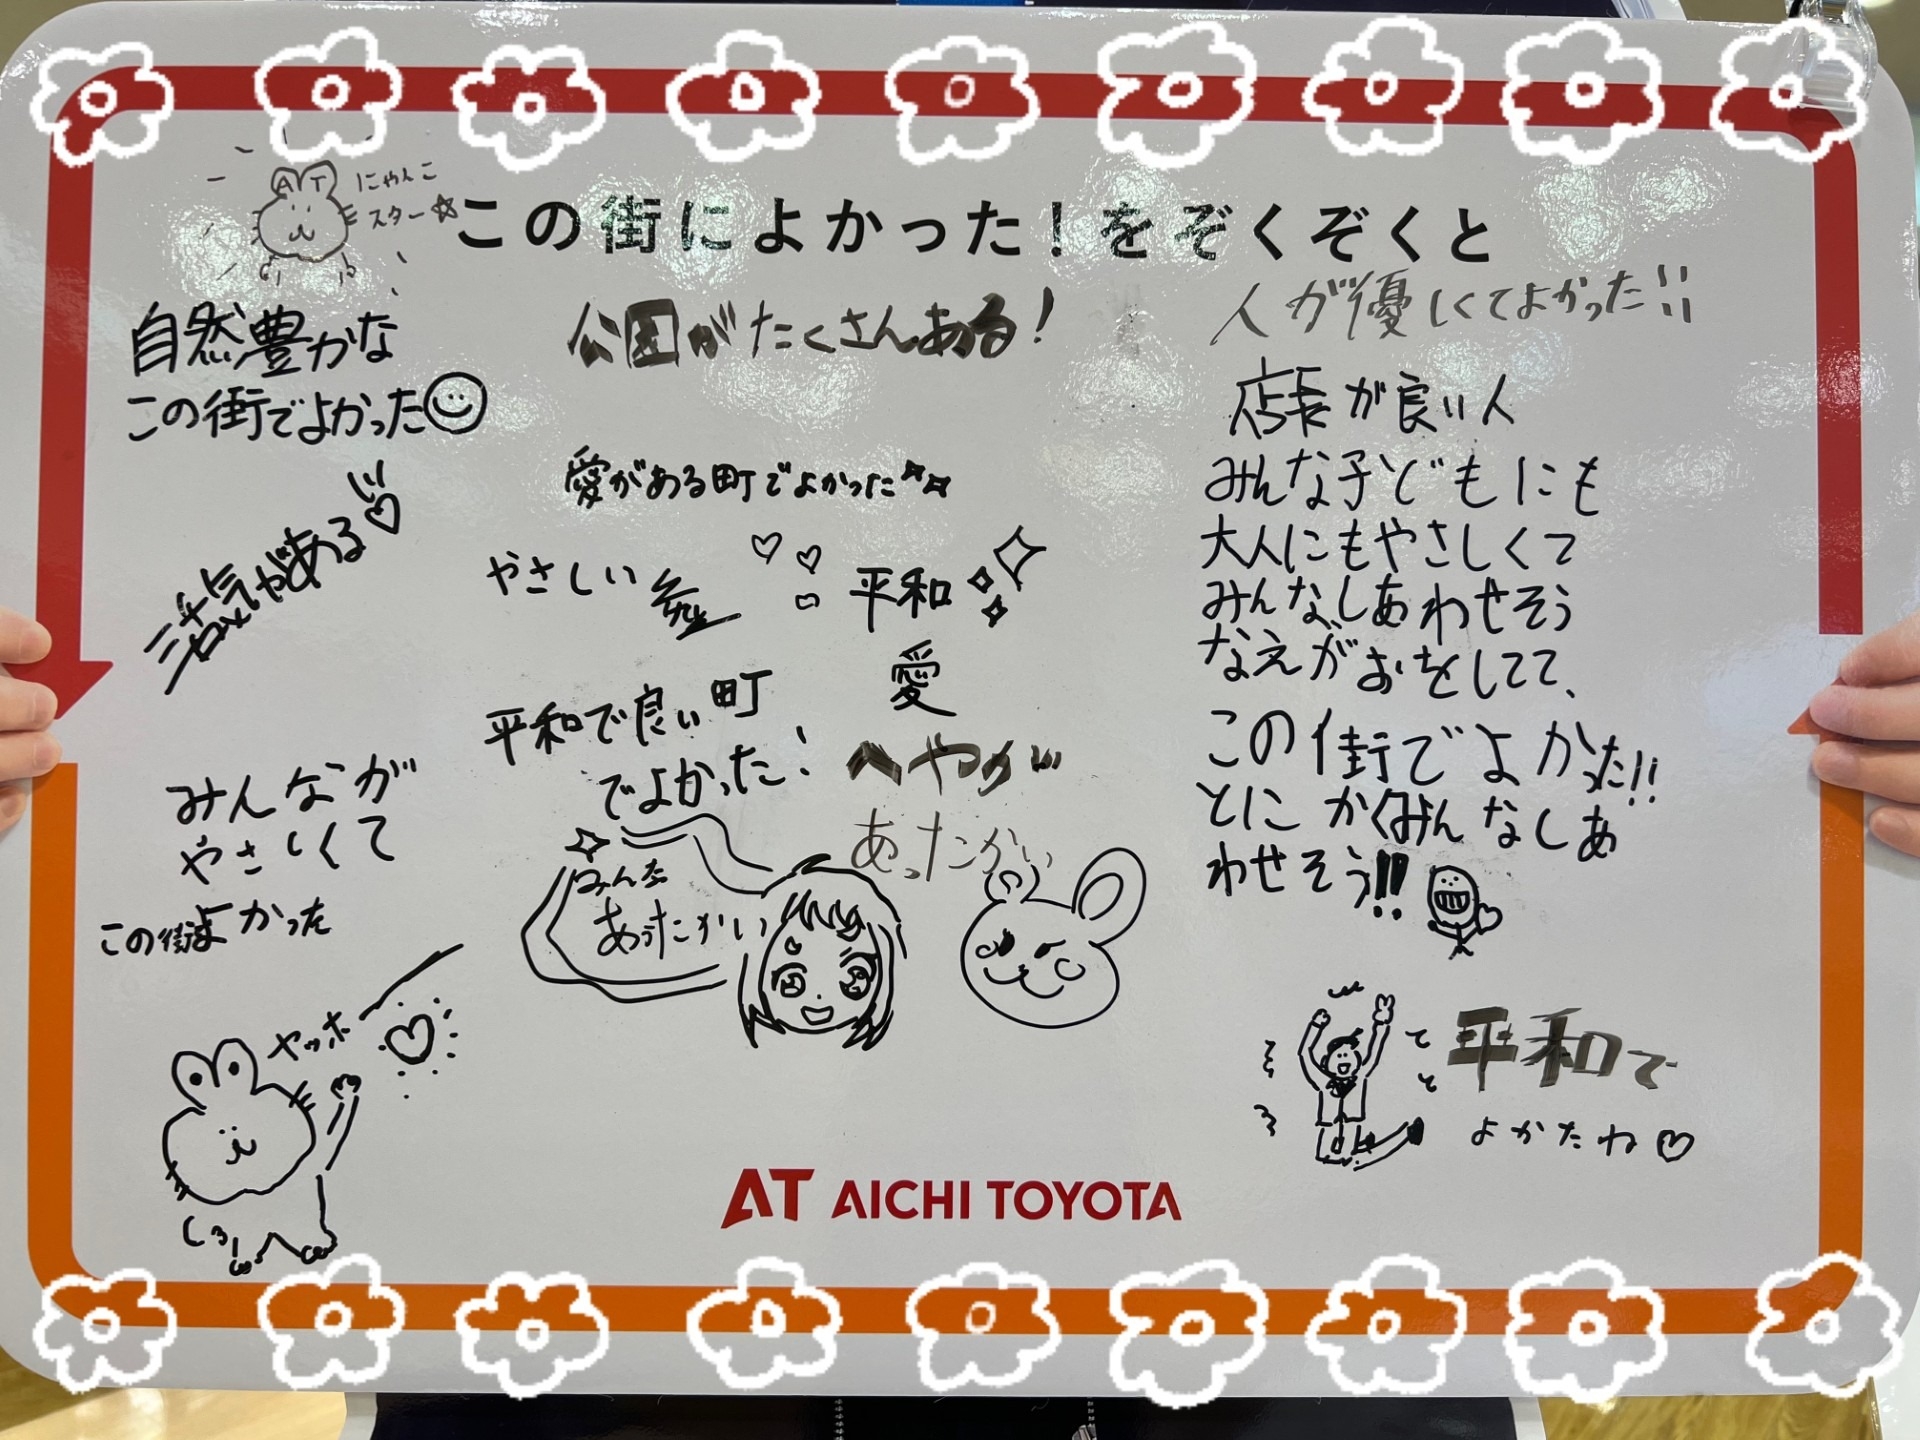 にゃんこ
スター☆
AT
この街によかった!をぞくぞくと
自然豊かな
この街でよかった
公園がたくさんある!
人が優しくてよかった!!
店長が良い人
みんな子どもにも
大人にもやさしくて
みんなしあわせそう
なえがおをしてて、
この街でよかった!!
とにかくみんなしあ
わせそう!!
愛がある町でよかった
活気がある
やさしい
平和
愛
平和で良い町
でよかった!
へやが
あったかい
みんなが
やさしくて
この街よかった
みんな
あったかい
ヤッホー
平和で
よかたね♡
AT AICHI TOYOTA